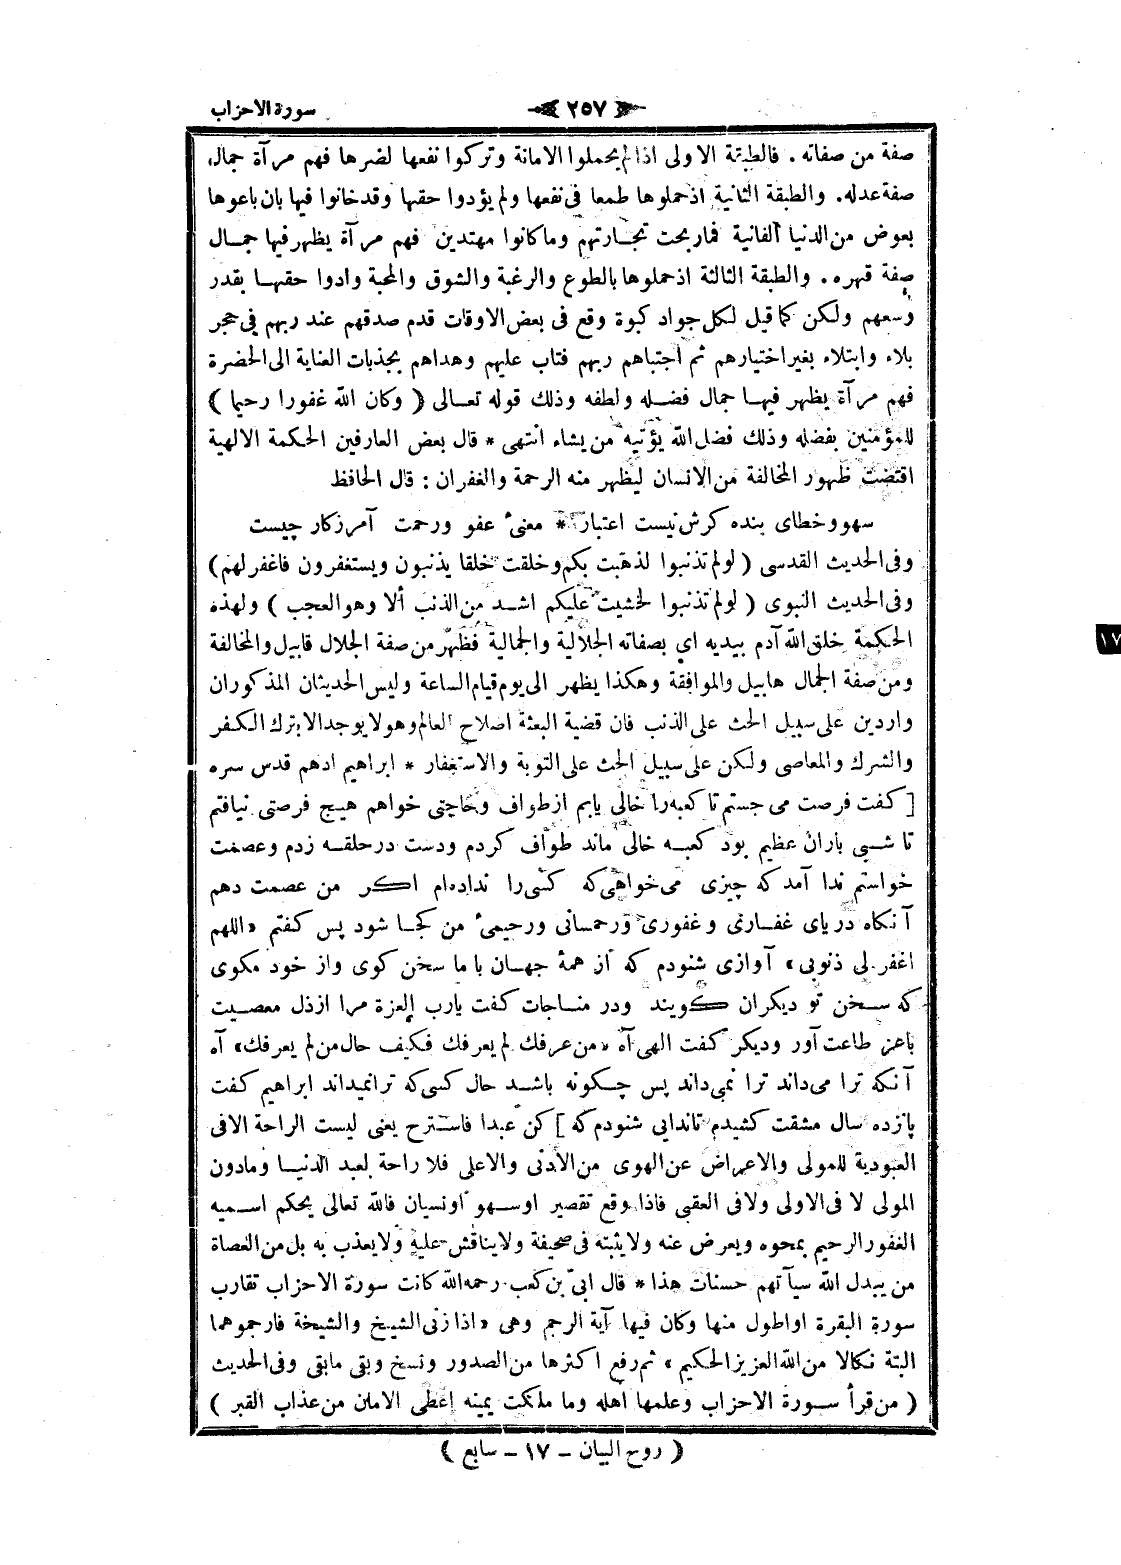 سورة الاحزاب
٢٥٧
صفة من صفاته . فالطبقة الاولى اذا لم يحملوا الامانة وتركوا نفعها لضرها فهم مرآة جمال
صفة عدله. والطبقة الثانية اذحملوها طمعا فى نفعها ولم يؤدوا حقها وقدخانوا فيها بان باعوها
بعوض من الدنيا الفانية فماربحت تجارتهم وماكانوا مهتدين فهم مرآة يظهر فيها جمال
صفة قهره . والطبقة الثالثة اذحملوها بالطوع والرغبة والشوق والمحبة وادوا حقها بقدر
وسعهم ولكن كما قيل لكل جواد كبوة وقع فى بعض الاوقات قدم صدقهم عند ربهم فى حجر
بلاء وابتلاء بغير اختيارهم ثم اجتباهم ربهم فتاب عليهم وهداهم بجذبات العناية الى الحضرة
فهم مرآة يظهر فيها جمال فضله ولطفه وذلك قوله تعالى ( وكان الله غفورا رحيما )
للمؤمنين بفضله وذلك فضل الله يؤتيه من يشاء انتهى * قال بعض العارفين الحكمة الالهية
اقتضت ظهور المخالفة من الانسان ليظهر منه الرحمة والغفران : قال الحافظ
سهو وخطاى بنده كرش نيست اعتبار * معنئ عفو ورحمت آمرزكار چيست
وفى الحديث القدسى ( لولم تذنبوا لذهبت بكم وخلقت خلقا يذنبون ويستغفرون فاغفرلهم )
وفى الحديث النبوى ( لولم تذنبوا لخشيت عليكم اشد من الذنب ألا وهو العجب ) ولهذه
الحكمة خلق الله آدم بيديه اي بصفاته الجلالية والجمالية فظهر من صفة الجلال قابيل والمخالفة
ومن صفة الجمال هابيل والموافقة وهكذا يظهر الى يوم قيام الساعة وليس الحديثان المذكوران
واردين على سبيل الحث على الذنب فان قضية البعثة اصلاح العالم وهو لا يوجد الا بترك الكفر
والشرك والمعاصى ولكن على سبيل الحث على التوبة والاستغفار * ابراهيم ادهم قدس سره
[ كفت فرصت مى جستم تا كعبه را خالى يابم از طواف وحاجتى خواهم هيچ فرصتى نيافتم
تا شبى باران عظيم بود كعبه خالى ماند طواف كردم ودست در حلقه زدم وعصمت
خواستم ندا آمد كه چيزى مى خواهى كه كسى را نداده ام اكر من عصمت دهم
آنكاه درياى غفارى و غفورى ورحمانى ورحيمئ من كجا شود پس كفتم «اللهم
اغفر لى ذنوبى» آوازى شنودم كه از همۀ جهان با ما سخن كوى واز خود مكوى
كه سخن تو ديكران كويند ودر مناجات كفت يارب العزة مرا ازذل معصيت
باعز طاعت آور وديكر كفت الهى آه «من عرفك لم يعرفك فكيف حال من لم يعرفك» آه
آنكه ترا مى داند ترا نمى داند پس چكونه باشد حال كسى كه ترا نميداند ابراهيم كفت
پانزده سال مشقت كشيدم تا ندايى شنودم كه ] كن عبدا فاسترح يعنى ليست الراحة الا فى
العبودية للمولى والاعراض عن الهوى من الأدنى والاعلى فلا راحة لعبد الدنيا ومادون
المولى لا فى الاولى ولا فى العقبى فاذا وقع تقصير اوسهو اونسيان فالله تعالى يحكم اسميه
الغفور الرحيم يمحوه ويعرض عنه ولا يثبته فى صحيفة ولا يناقش عليه ولا يعذب به بل من العصاة
من يبدل الله سيآتهم حسنات هذا * قال ابىّ بن كعب رحمه الله كانت سورة الاحزاب تقارب
سورة البقرة اواطول منها وكان فيها آية الرجم وهى «اذا زنى الشيخ والشيخة فارجموهما
البتة نكالا من الله العزيز الحكيم» ثم رفع اكثرها من الصدور ونسخ وبقى مابقى وفى الحديث
( من قرأ سورة الاحزاب وعلمها اهله وما ملكت يمينه اعطى الامان من عذاب القبر )
( روح البيان – ١٧ – سابع )
١٧